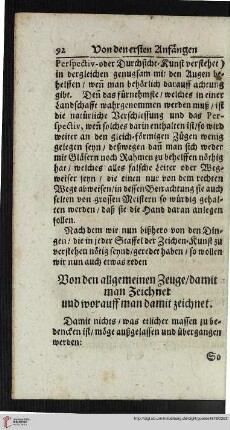 92 Von den ersten Anfängen
Perspectiv-oder Durchsicht-Kunst verstehet)
in dergleichen genugsam mit den Augen be-
helffen / wenn man behörlich darauff achtung
gibt. Deñ das fürnehmste / welches in einer
Landschafft wahrgenommen werden muß / ist
die natürliche Verschiessung und das Per-
spectiv, weñ solches darin enthalten ist / so wird
weiter an den gleich-förmigen Zügen wenig
gelegen seyn / deßwegen dañ man sich weder
mit Gläsern noch Rahmen zu behelffen nöthig
hat / welches alles falsche Leiter oder Weg-
weiser seyn / die einen nur von dem rechten
Wege abweisen / in dessen Betrachtung sie auch
selten von grossen Meistern so würdig gehal-
ten werden / daß sie die Hand daran anlegen
sollen.
Nach dem wir nun bißhero von den Din-
gen / die in jeder Staffel der Zeichen-Kunst zu
verstehen nötig seynd / geredet haben / so wollen
wir nun auch etwas reden
Von den allgemeinen Zeuge / damit
man Zeichnet
und worauff man damit zeichnet.
Damit nichts / was etlicher massen zu be-
dencken ist / möge außgelassen und übergangen
werden:
So